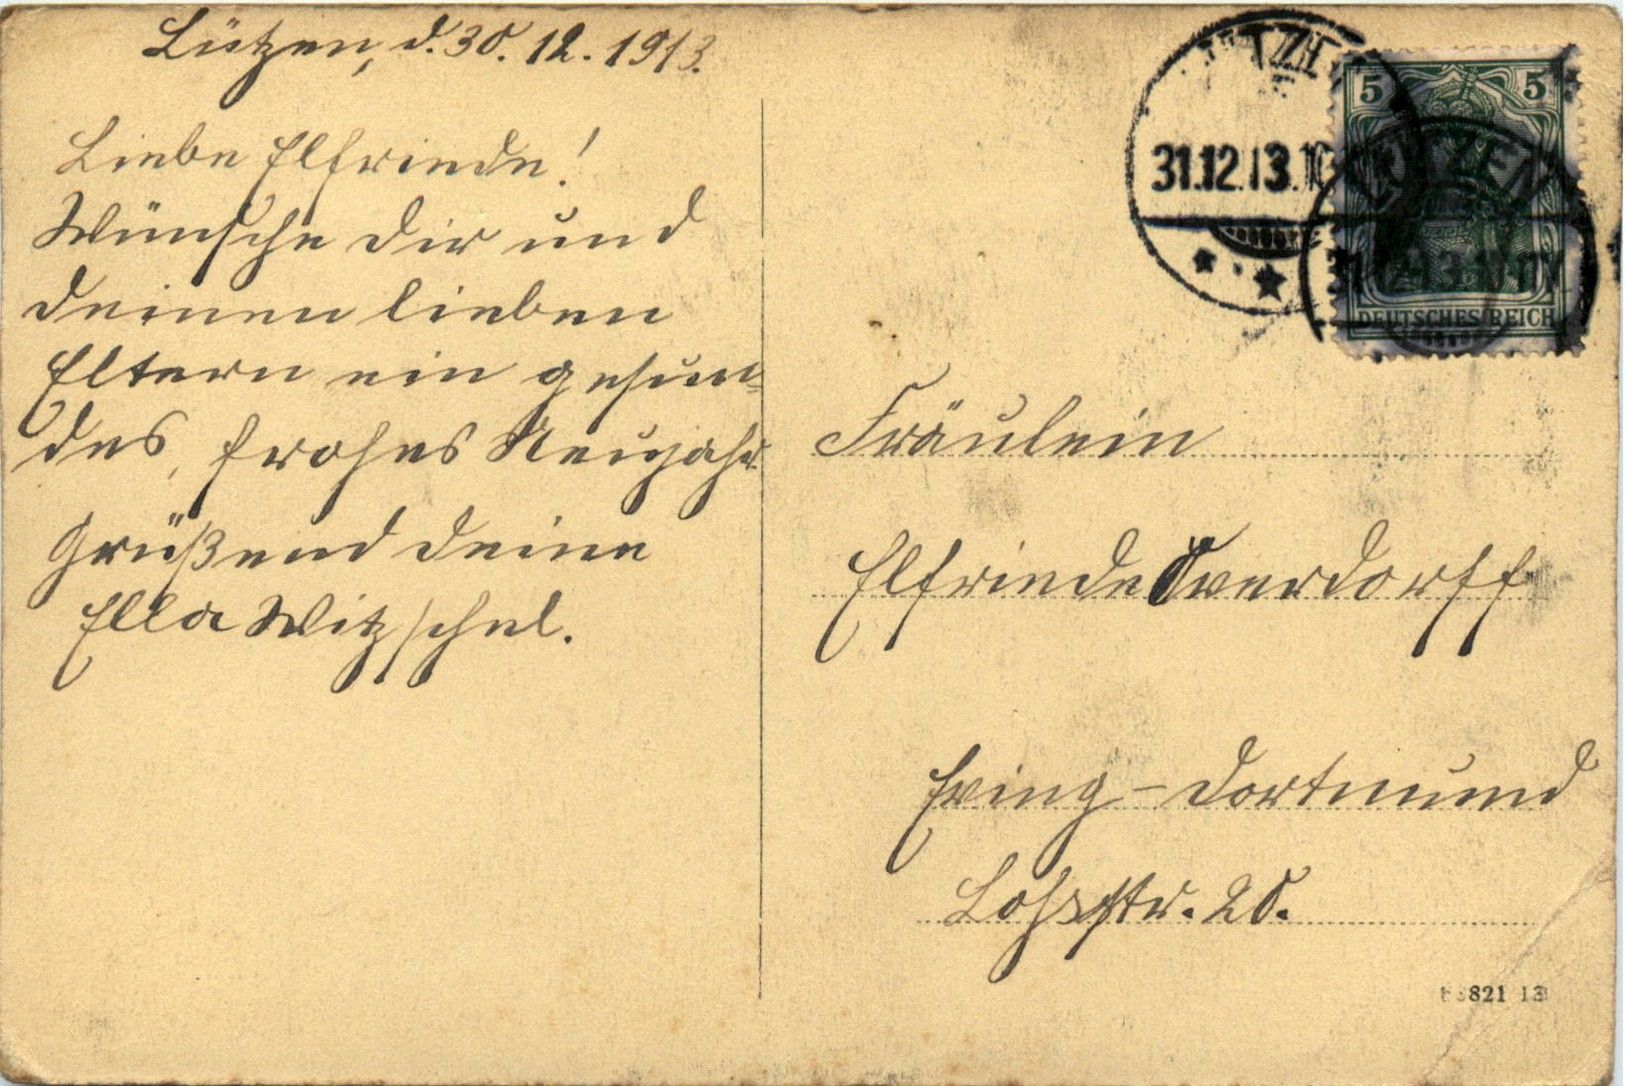 Lützen, d. 30. 12. 1913.
Liebe Elfriede!
Wünsche Dir und
Deinen lieben
Eltern ein gesun-
des, frohes Neujahr.
Grüßend Deine
Ella Witzschel.
LÜTZEN
31.12.13.10
LÜTZEN
31.12.13.10-11V
5 5
DEUTSCHES REICH
Fräulein
Elfriede Overdorff
Eving-Dortmund
Lohstr. 20.
821 13